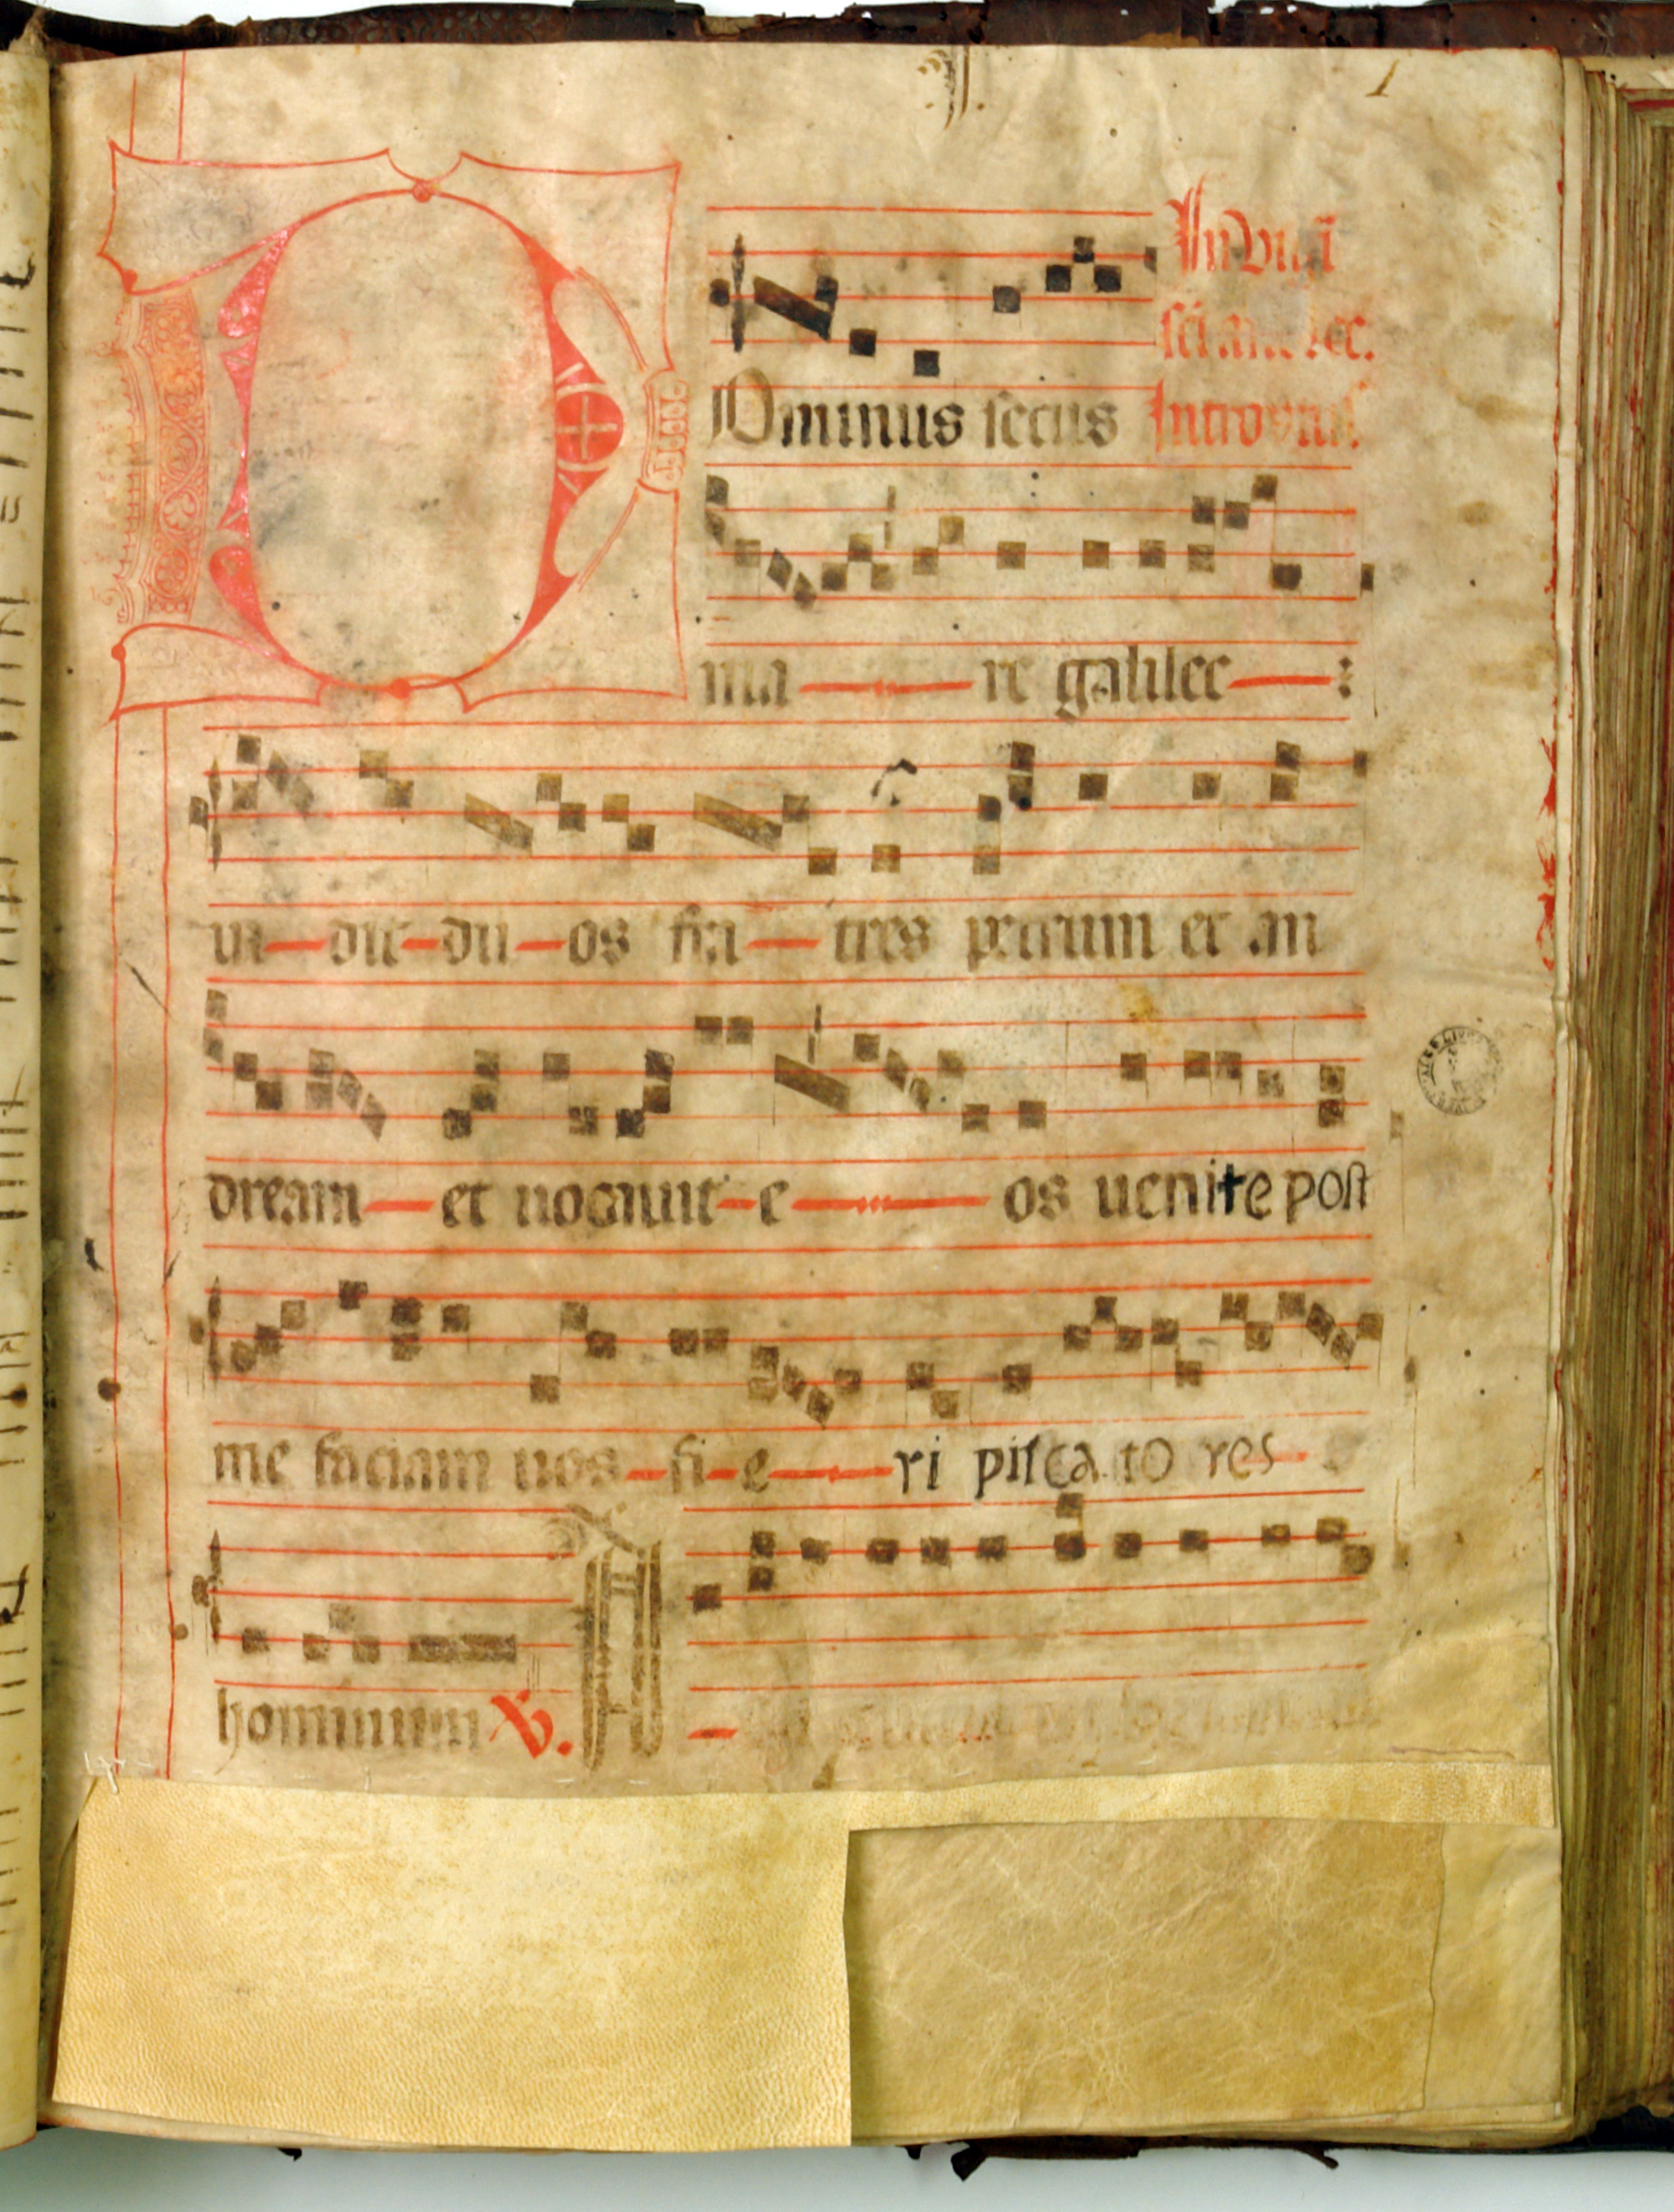 1
In vigił
sci an
Dominus secus Introytus
ma re galilee :
ui dit du os fra tres petrum et an
dream et uocauit e os uenite post
me faciam uos fi e ri pisca to res
hominum V. A